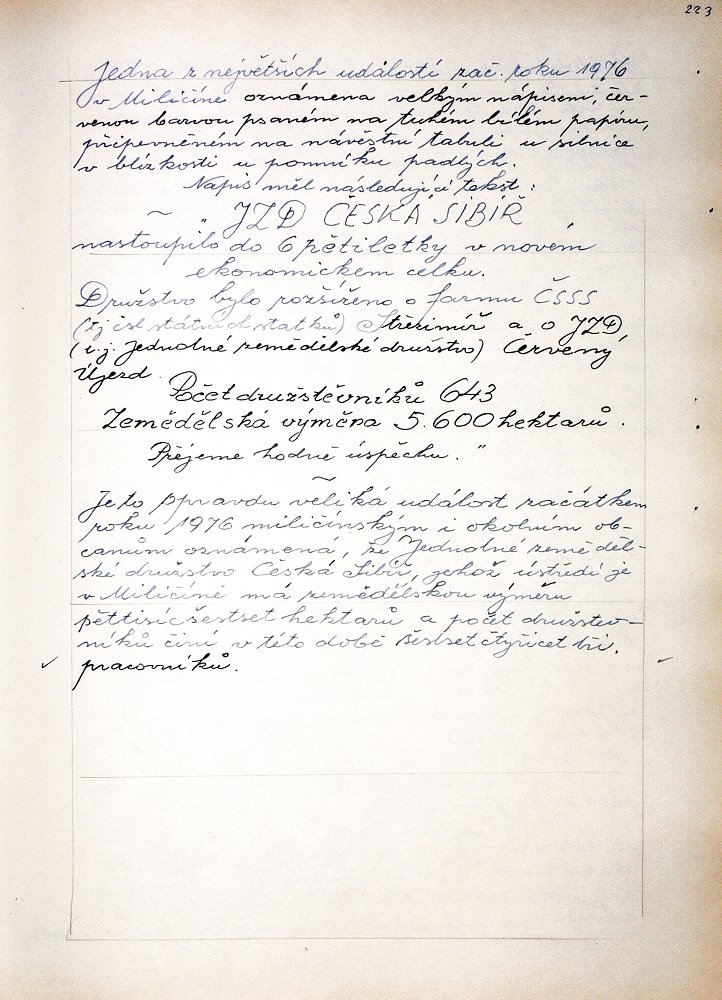 223
Jedna z největších událostí zač. roku 1976
v Miličíně oznámena velkým nápisem, čer-
venou barvou psaném na tuhém bílém papíru,
připevněném na návěstní tabuli u silnice
v blízkosti u pomníku padlých.
Napis měl následující tekst:
~ „ JZD ČESKÁ SIBIŘ
nastoupilo do 6 pětiletky v novém
ekonomickem celku.
Družstvo bylo rozšířeno o farmu ČSSS
(tj čsl státních statků) Střezimíř a o JZD,
(t.j. Jednotné zemědělské družstvo) Červený
Újezd.
Počet družstevníků 643
Zemědělská výměra 5.600 hektarů.
Přejeme hodně úspěchu."
~
Je to opravdu veliká událost začátkem
roku 1976 miličínským i okolním ob-
čanům oznámená, že Jednotné zeměděl-
ské družstvo Česká Sibiř, jehož ústředí je
v Miličíně má zemědělskou výměru
pěttisícšestset hektarů a počet družstev-
níků činí v této době šestset čtyřicet tři,
pracovníků.